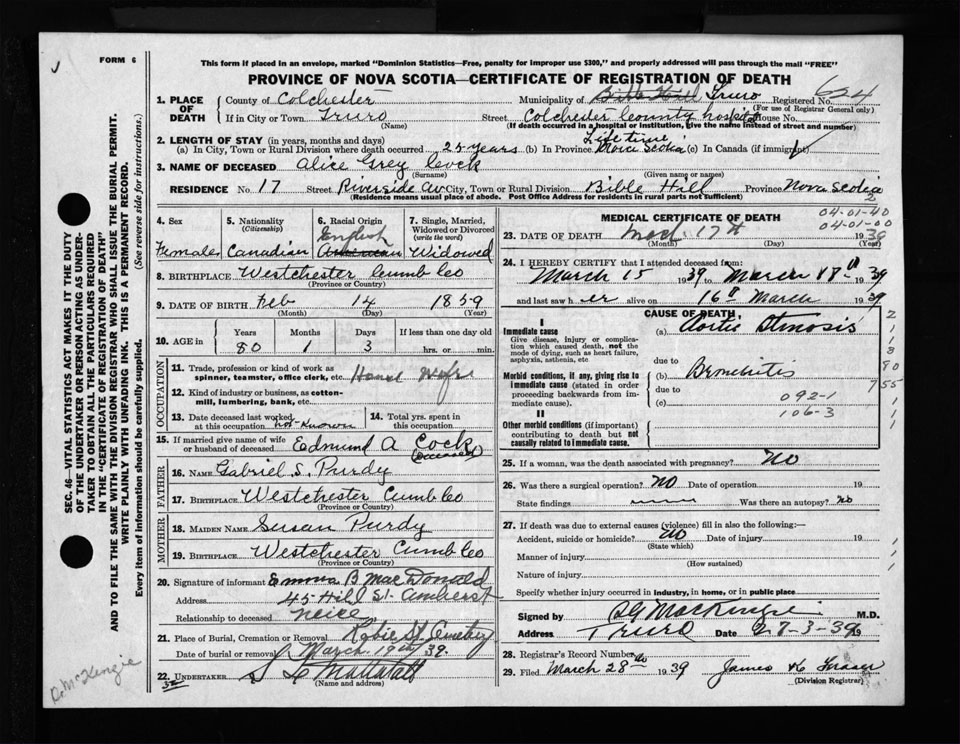 FORM 6
This form if placed in an envelope, marked "Dominion Statistics—Free, penalty for improper use $300," and properly addressed will pass through the mail "FREE"
PROVINCE OF NOVA SCOTIA—CERTIFICATE OF REGISTRATION OF DEATH
1. PLACE OF DEATH County of Colchester Municipality of Bible Hill Truro Registered No. 624
(For use of Registrar General only)
If in City or Town Truro Street Colchester County Hospital House No.
(Name) (If death occurred in a hospital or institution, give the name instead of street and number)
2. LENGTH OF STAY (in years, months and days) Life time
(a) In City, Town or Rural Division where death occurred 25 years (b) In Province Nova Scotia (c) In Canada (if immigrant)
3. NAME OF DECEASED Alice Grey Cock
(Surname) (Given name or names)
RESIDENCE No. 17 Street Riverside Av City, Town or Rural Division Bible Hill Province Nova Scotia
(Residence means usual place of abode. Post Office Address for residents in rural parts not sufficient) 2
4. Sex 5. Nationality (Citizenship) 6. Racial Origin 7. Single, Married, Widowed or Divorced (write the word)
English
Female Canadian American Widowed
8. BIRTHPLACE Westchester Cumb Co
(Province or Country)
9. DATE OF BIRTH Feb 14 1859
(Month) (Day) (Year)
10. AGE in Years Months Days If less than one day old
80 1 3 hrs. or min.
OCCUPATION
11. Trade, profession or kind of work as spinner, teamster, office clerk, etc. House Wife
12. Kind of industry or business, as cotton-mill, lumbering, bank, etc.
13. Date deceased last worked at this occupation not known 14. Total yrs. spent in this occupation
15. If married give name of wife or husband of deceased Edmund A Cock
(deceased)
FATHER
16. NAME Gabriel S. Purdy
17. BIRTHPLACE Westchester Cumb Co
(Province or Country)
MOTHER
18. MAIDEN NAME Susan Purdy
19. BIRTHPLACE Westchester Cumb Co
(Province or Country)
20. Signature of informant Emma B MacDonald
Address 45 Hill St Amherst
Relationship to deceased neice
21. Place of Burial, Cremation or Removal Robie St Cemetery
Date of burial or removal March 19th/39.
22. UNDERTAKER
(Name and address)
MEDICAL CERTIFICATE OF DEATH 04-01-40
04-01-00
23. DATE OF DEATH Mach 17th 1939
(Month) (Day) (Year)
24. I HEREBY CERTIFY that I attended deceased from:
March 15 1939 to March 18th 1939
and last saw her alive on 16th March 1939
CAUSE OF DEATH
I
Immediate cause
Give disease, injury or complication which caused death, not the mode of dying, such as heart failure, asphyxia, asthenia, etc
(a) Aortic Stenosis
due to
Morbid conditions, if any, giving rise to immediate cause (stated in order proceeding backwards from immediate cause).
(b)
due to
092-1
(c)
106-3
II
Other morbid conditions (if important) contributing to death but not causally related to immediate cause.
25. If a woman, was the death associated with pregnancy? No
26. Was there a surgical operation? No Date of operation 19
State findings Was there an autopsy? No
27. If death was due to external causes (violence) fill in also the following:—
Accident, suicide or homicide? No Date of injury 19
(State which)
Manner of injury
(How sustained)
Nature of injury
Specify whether injury occurred in industry, in home, or in public place
Signed by MacKenzie M.D.
Address Truro Date 27-3-39 19
28. Registrars Record Number
29. Filed March 28th 1939 James Fraser
(Division Registrar)
SEC. 46—VITAL STATISTICS ACT MAKES IT THE DUTY OF THE UNDERTAKER OR PERSON ACTING AS UNDERTAKER TO OBTAIN ALL THE PARTICULARS REQUIRED IN THE "CERTIFICATE OF REGISTRATION OF DEATH"
AND TO FILE THE SAME WITH THE DIVISION REGISTRAR WHO SHALL ISSUE THE BURIAL PERMIT.
WRITE PLAINLY WITH UNFADING INK. THIS IS A PERMANENT RECORD.
Every item of information should be carefully supplied. (See reverse side for instructions.)
McKenzie